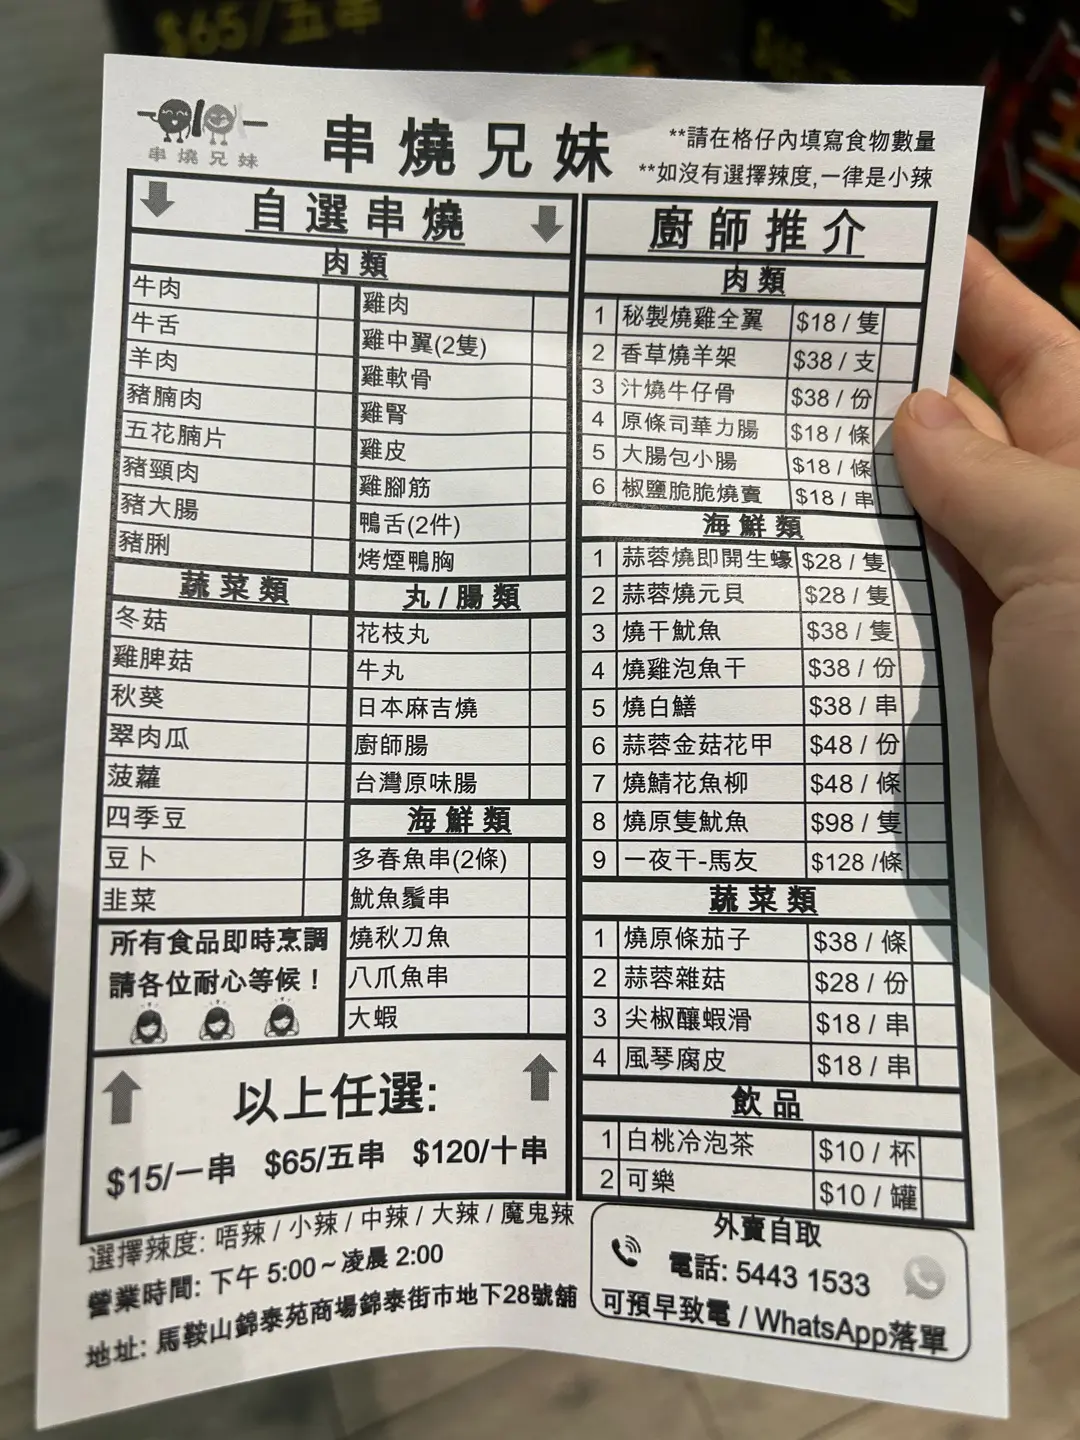 $65/五串
串燒兄妹
串燒兄妹
**請在格仔內填寫食物數量
**如沒有選擇辣度,一律是小辣
自選串燒
肉類
牛肉
牛舌
羊肉
豬腩肉
五花腩片
豬頸肉
豬大腸
豬脷
雞肉
雞中翼(2隻)
雞軟骨
雞腎
雞皮
雞腳筋
鴨舌(2件)
烤煙鴨胸
蔬菜類
冬菇
雞脾菇
秋葵
翠肉瓜
菠蘿
四季豆
豆卜
韭菜
丸/腸類
花枝丸
牛丸
日本麻吉燒
廚師腸
台灣原味腸
海鮮類
多春魚串(2條)
魷魚鬚串
燒秋刀魚
八爪魚串
大蝦
所有食品即時烹調
請各位耐心等候！
以上任選:
$15/一串 $65/五串 $120/十串
廚師推介
肉類
1 秘製燒雞全翼 $18 / 隻
2 香草燒羊架 $38 / 支
3 汁燒牛仔骨 $38 / 份
4 原條司華力腸 $18 / 條
5 大腸包小腸 $18 / 條
6 椒鹽脆脆燒賣 $18 / 串
海鮮類
1 蒜蓉燒即開生蠔 $28 / 隻
2 蒜蓉燒元貝 $28 / 隻
3 燒干魷魚 $38 / 隻
4 燒雞泡魚干 $38 / 份
5 燒白鱔 $38 / 串
6 蒜蓉金菇花甲 $48 / 份
7 燒鯖花魚柳 $48 / 條
8 燒原隻魷魚 $98 / 隻
9 一夜干-馬友 $128 /條
蔬菜類
1 燒原條茄子 $38 / 條
2 蒜蓉雜菇 $28 / 份
3 尖椒釀蝦滑 $18 / 串
4 風琴腐皮 $18 / 串
飲品
1 白桃冷泡茶 $10 / 杯
2 可樂 $10 / 罐
選擇辣度: 唔辣 / 小辣 / 中辣 / 大辣 / 魔鬼辣
營業時間: 下午 5:00 ~ 凌晨 2:00
地址: 馬鞍山錦泰苑商場錦泰街市地下28號舖
外賣自取
電話: 5443 1533
可預早致電 / WhatsApp落單